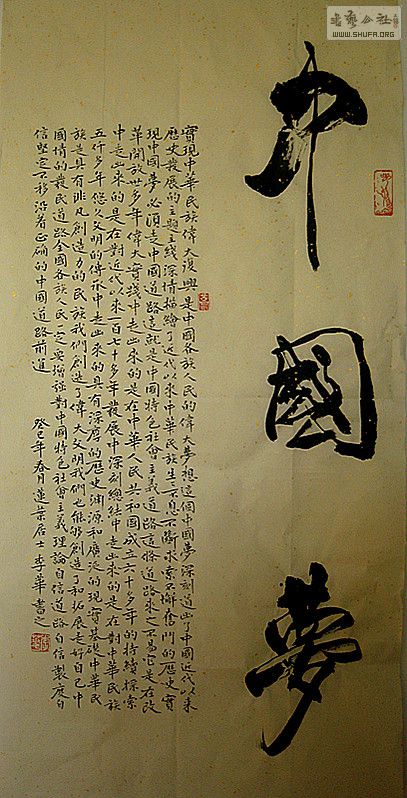 中國夢
實現中華民族偉大復興是中國各族人民的偉大夢想這個中國夢深刻道出了中國近代以來
歷史發展的主題主线深情描繪了近代以來中華民族生生不息不斷求索不懈奮鬥的歷史實
現中國夢必須走中國道路這就是中國特色社會主義道路這條道路來之不易它是在改
革開放卅多年偉大實踐中走出來的是在中華人民共和國成立六十多年的持續探索
中走出來的是在對近代以來一百七十多年發展中深刻總結中走出來的是在對中華民族
五仟多年悠久文明的傳承中走出來的具有深厚的歷史渊源和廣泛的現實基礎中華民
族是具有非凡創造力的民族我們創造了偉大文明我們也能够創造了和拓展走好自己中
國情的發展道路全國各族人民一定要增强對中國特色社會主義理論自信道路自信製度自
信堅定不移沿着正确的中國道路前進
癸巳年春月蓮葉居士李華書之
書藝公社
WWW.SHUFA.ORG